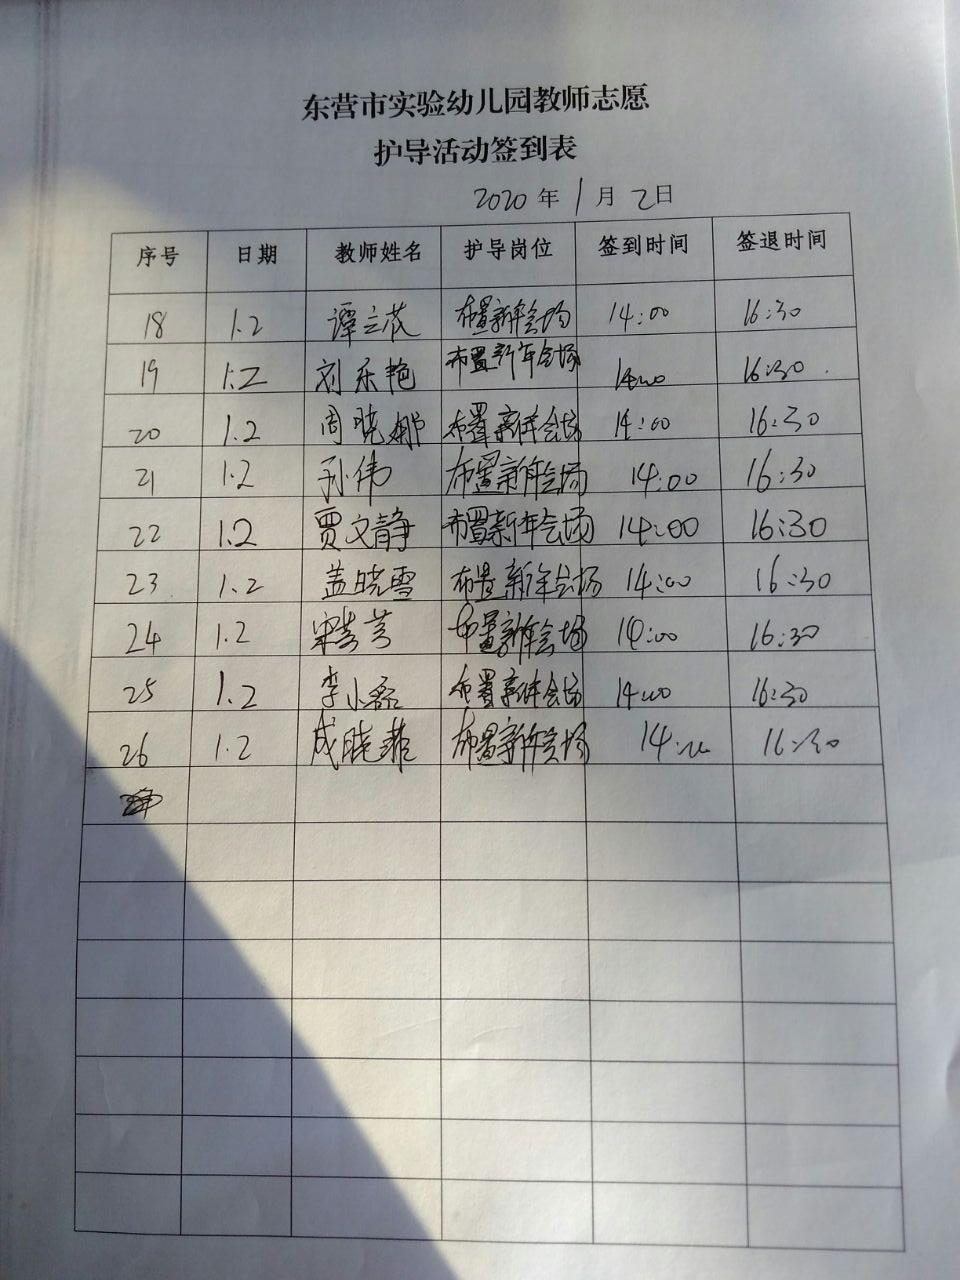 东营市实验幼儿园教师志愿
护导活动签到表
2020年1月2日
序号 日期 教师姓名 护导岗位 签到时间 签退时间
18 1.2 谭立花 布置新年会场 14:00 16:30
19 1.2 刘乐艳 布置新年会场 14:00 16:30
20 1.2 周晓娜 布置新年会场 14:00 16:30
21 1.2 孙伟 布置新年会场 14:00 16:30
22 1.2 贾文静 布置新年会场 14:00 16:30
23 1.2 盖晓雪 布置新年会场 14:00 16:30
24 1.2 布置新年会场 14:00 16:30
25 1.2 李小磊 布置新年会场 14:00 16:30
26 1.2 成晓菲 布置新年会场 14:00 16:30